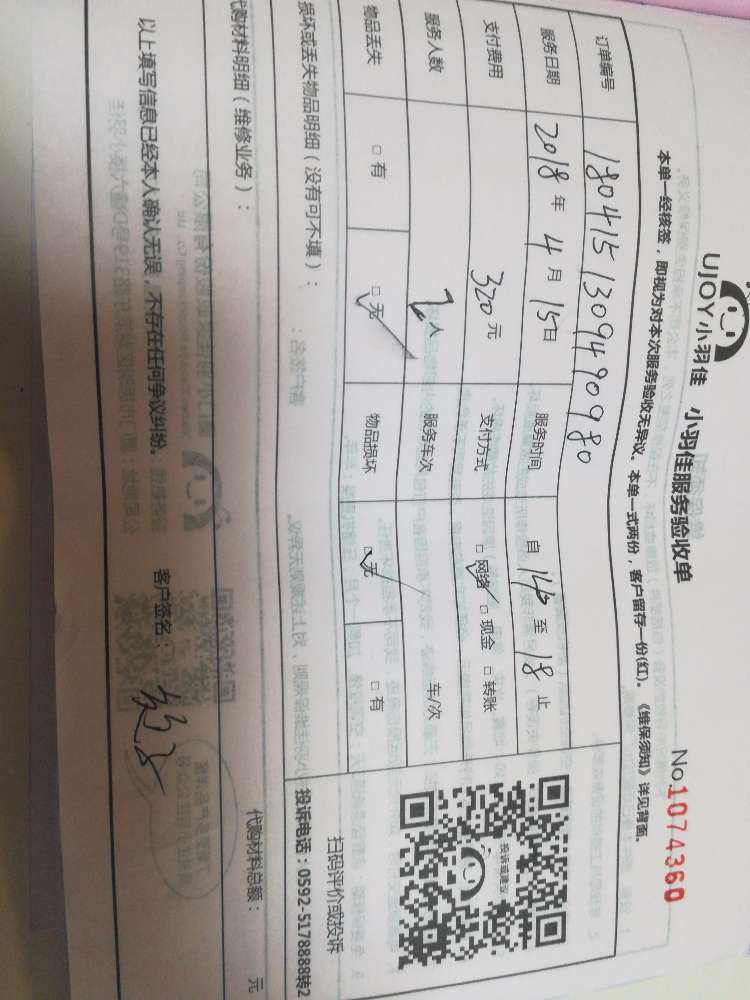 UJOY小羽佳 小羽佳服务验收单
No.1074360
本单一经核签，即视为对本次服务验收无异议。本单一式两份，客户留存一份(红)。《维保须知》详见背面。
订单编号 1804151309490980
服务日期 2018年4月15日 服务时间 自14至18止
支付费用 320元 支付方式 □网络 □现金 □转账
服务人数 2人 服务车次 车/次
物品丢失 □有 □无 物品损坏 □无 □有
投诉或建议
扫码评价或投诉
投诉电话：0592-5178888转2
损坏或丢失物品明细（没有可不填）：
代购材料明细（维修业务）： 代购材料总额： 元
以上填写信息已经本人确认无误，不存在任何争议纠纷。 客户签名：